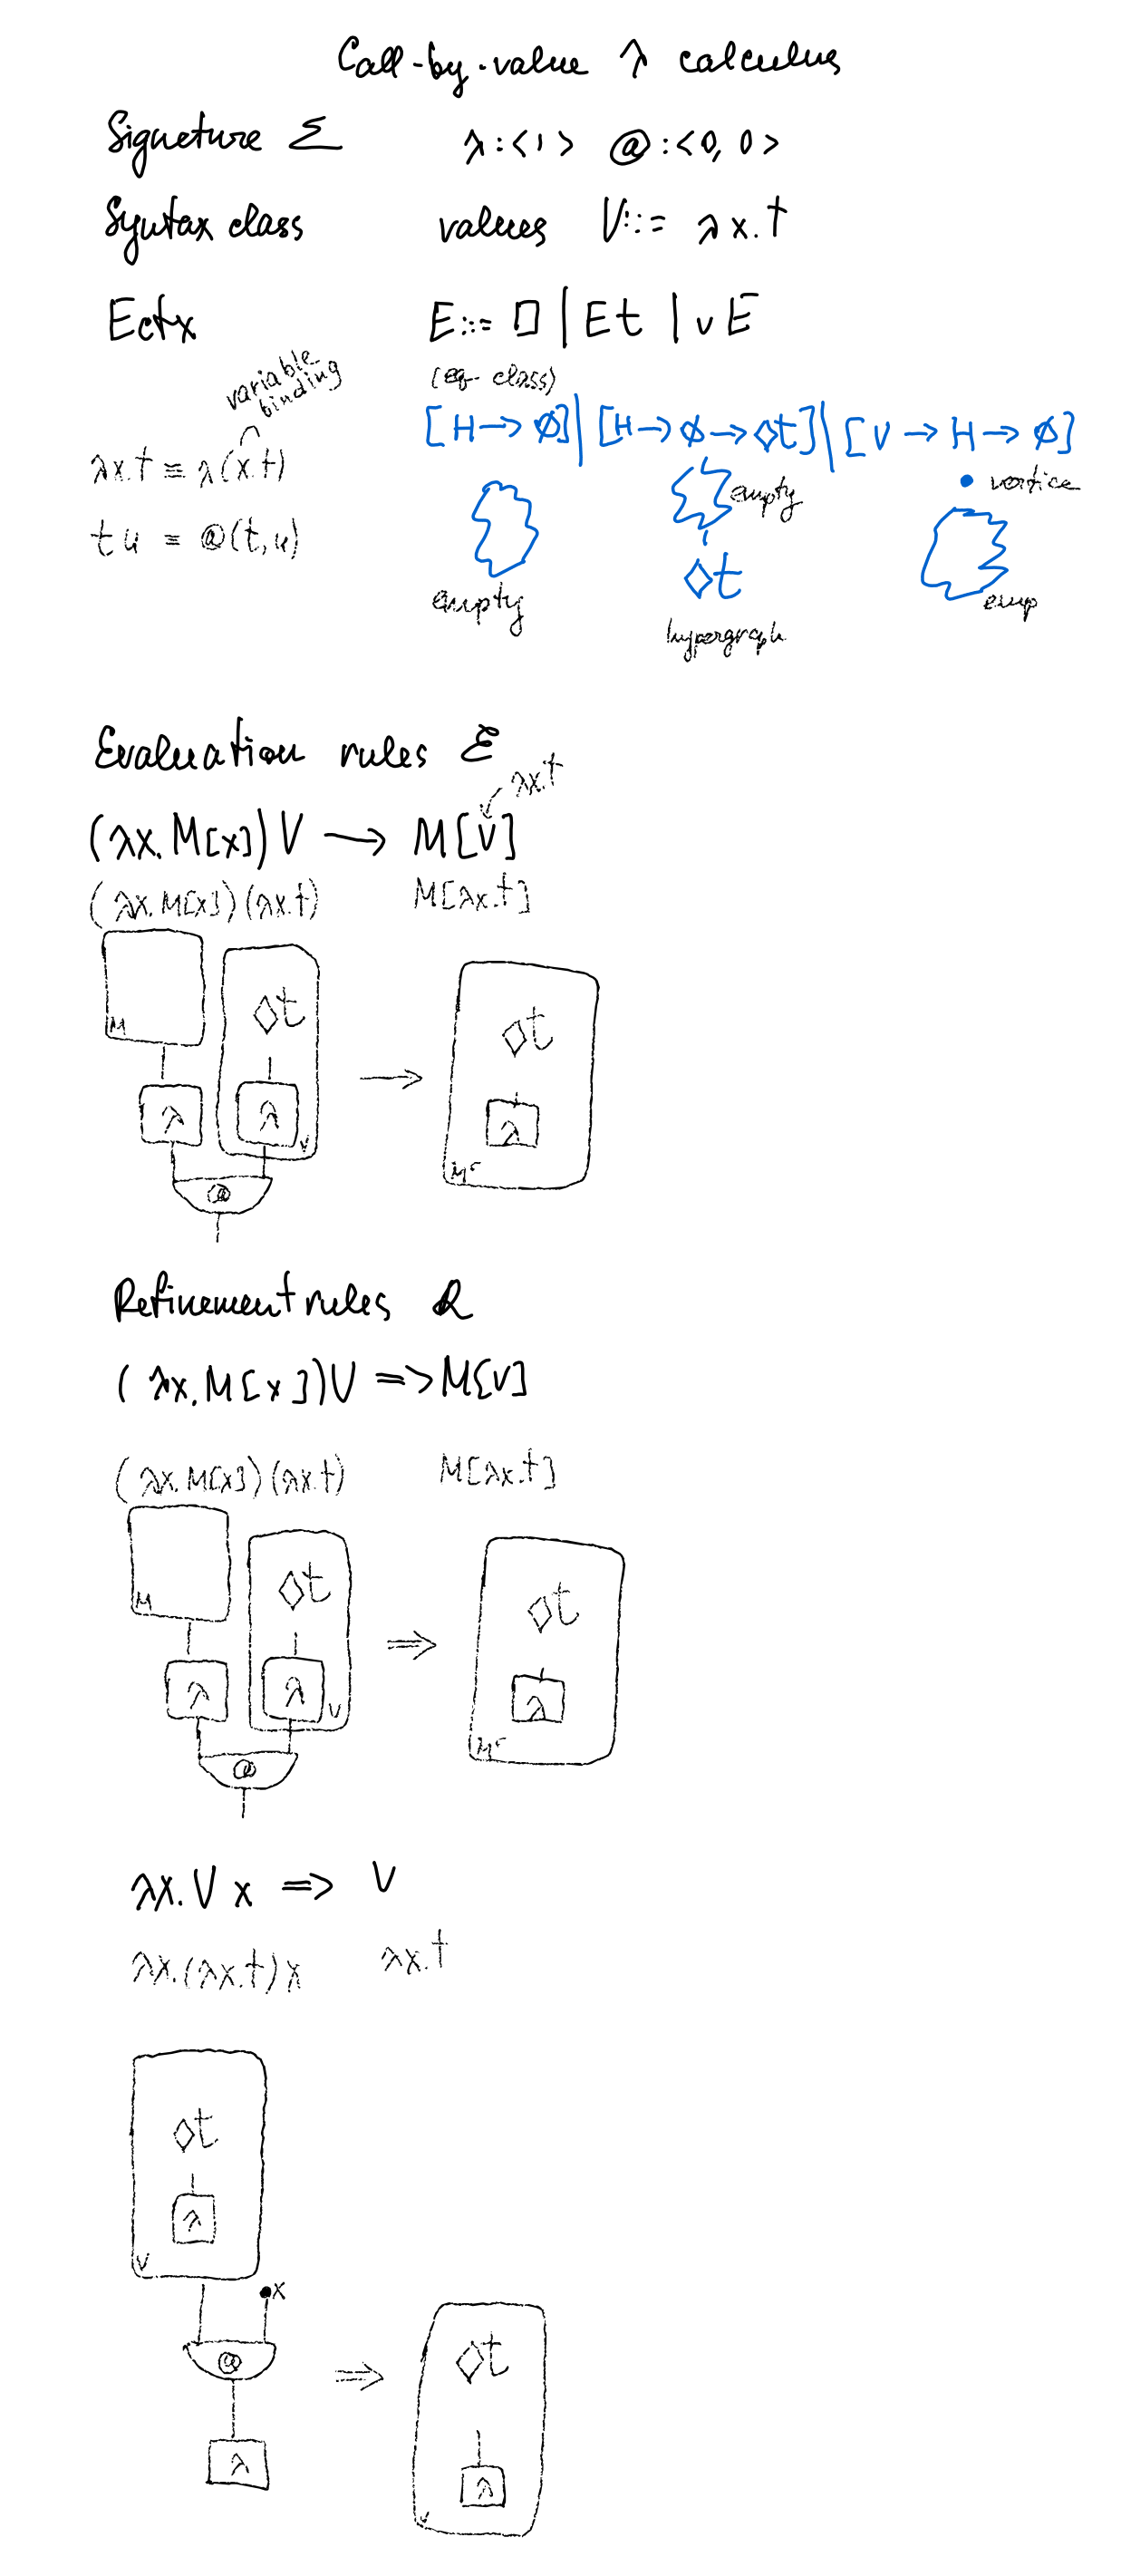 Call-by-value λ calculus
Signature Σ λ:<1> @:<0, 0>
Syntax class values V::= λx.t
Ectx E::= □ | E t | v E
(eq- class)
variable binding
[H→∅] | [H→∅→◇t] | [V→H→∅]
λx.t ≡ λ(x.t)
t u ≡ @(t,u)
empty
• vertice
empty
◇t
hypergraph
emp
Evaluation rules ℰ
λx.t
(λx. M[x]) V → M[v]
(λx. M[x]) (λx.t) M[λx.t]
◇t ◇t
M
→
λ λ λ
V
M
@
Refinement rules R
(λx. M[x]) V => M[v]
(λx. M[x]) (λx.t) M[λx.t]
◇t ◇t
M
⇒
λ λ λ
V
M
@
λx. V x => V
λx.(λx.t) x λx.t
◇t
λ
V
x
@ ⇒ ◇t
λ λ
V